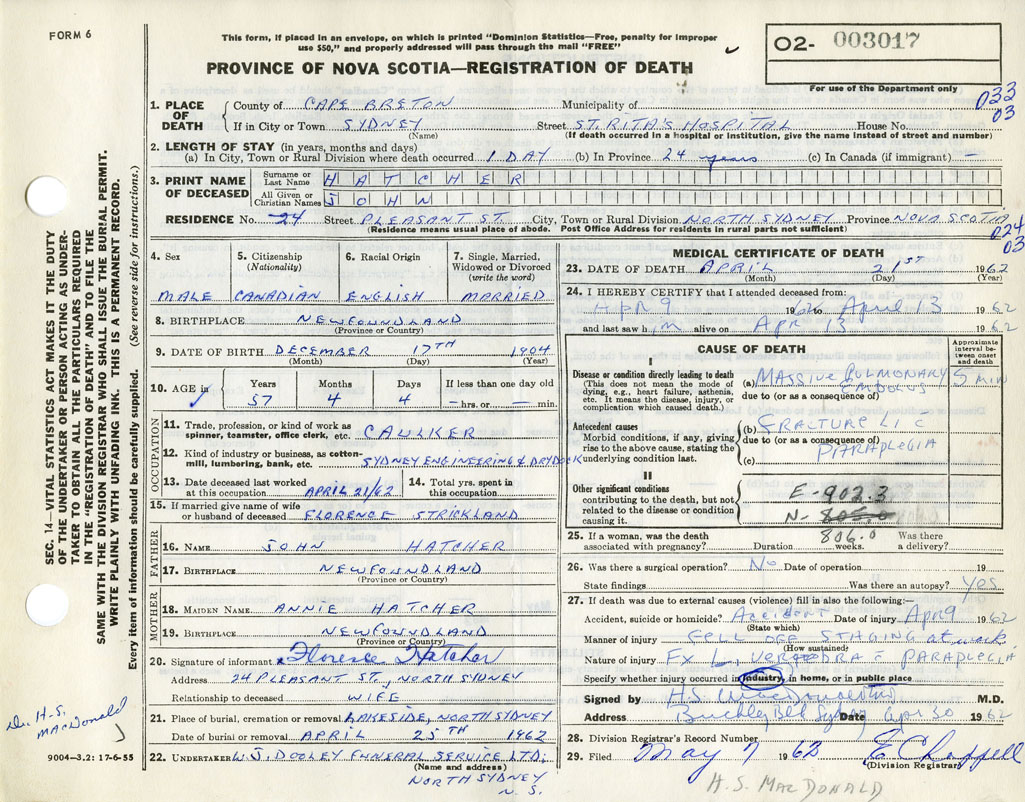 FORM 6
This form, if placed in an envelope, on which is printed "Dominion Statistics—Free, penalty for improper
use $50," and properly addressed will pass through the mail "FREE"
PROVINCE OF NOVA SCOTIA—REGISTRATION OF DEATH
02- 003017
For use of the Department only
033
03
1. PLACE OF DEATH
County of CAPE BRETON Municipality of
If in City or Town SYDNEY Street ST. RITA'S HOSPITAL House No.
(Name) (If death occurred in a hospital or institution, give the name instead of street and number)
2. LENGTH OF STAY (in years, months and days)
(a) In City, Town or Rural Division where death occurred 1 DAY (b) In Province 24 years (c) In Canada (if immigrant) —
3. PRINT NAME OF DECEASED
Surname or Last Name HATCHER
All Given or Christian Names JOHN
RESIDENCE No. 24 Street PLEASANT ST. City, Town or Rural Division NORTH SYDNEY Province NOVA SCOTIA
(Residence means usual place of abode. Post Office Address for residents in rural parts not sufficient)
024
03
4. Sex MALE
5. Citizenship (Nationality) CANADIAN
6. Racial Origin ENGLISH
7. Single, Married, Widowed or Divorced (write the word) MARRIED
8. BIRTHPLACE NEWFOUNDLAND
(Province or Country)
9. DATE OF BIRTH DECEMBER 17TH 1904
(Month) (Day) (Year)
10. AGE in Years Months Days If less than one day old
57 4 4 — hrs. or — min.
OCCUPATION
11. Trade, profession, or kind of work as
spinner, teamster, office clerk, etc. CAULKER
12. Kind of industry or business, as cotton-
mill, lumbering, bank, etc. SYDNEY ENGINEERING & DRYDOCK
13. Date deceased last worked at this occupation APRIL 21/62
14. Total yrs. spent in this occupation
15. If married give name of wife
or husband of deceased FLORENCE STRICKLAND
FATHER
16. NAME JOHN HATCHER
17. BIRTHPLACE NEWFOUNDLAND
(Province or Country)
MOTHER
18. MAIDEN NAME ANNIE HATCHER
19. BIRTHPLACE NEWFOUNDLAND
(Province or Country)
20. Signature of informant x Florence Hatcher
Address 24 PLEASANT ST., NORTH SYDNEY
Relationship to deceased WIFE
21. Place of burial, cremation or removal LAKESIDE, NORTH SYDNEY
Date of burial or removal APRIL 25TH 1962
22. UNDERTAKER W.J. DOOLEY FUNERAL SERVICE LTD.
(Name and address)
NORTH SYDNEY
N.S.
MEDICAL CERTIFICATE OF DEATH
23. DATE OF DEATH APRIL 21ST 1962
(Month) (Day) (Year)
24. I HEREBY CERTIFY that I attended deceased from:
Apr 9 1962 to April 13 1962
and last saw him alive on Apr 13 1962
CAUSE OF DEATH
Approximate interval between onset and death
I
Disease or condition directly leading to death
(This does not mean the mode of
dying, e.g., heart failure, asthenia,
etc. It means the disease, injury, or
complication which caused death.)
(a) MASSIVE PULMONARY EMBOLUS 5 MIN
due to (or as a consequence of)
Antecedent causes
Morbid conditions, if any, giving
rise to the above cause, stating the
underlying condition last.
(b) FRACTURE L1 C
due to (or as a consequence of) PARAPLEGIA
(c)
II
Other significant conditions
contributing to the death, but not
related to the disease or condition
causing it.
E-902.3
N-806.0
806.0
25. If a woman, was the death
associated with pregnancy? Duration weeks. Was there a delivery?
26. Was there a surgical operation? No Date of operation 19
State findings Was there an autopsy? Yes
27. If death was due to external causes (violence) fill in also the following:—
Accident, suicide or homicide? ACCIDENT Date of injury Apr 9 1962
(State which)
Manner of injury FELL OFF STAGING at work
(How sustained)
Nature of injury FX L, VERTEBRA - PARAPLEGIA
Specify whether injury occurred in industry, in home, or in public place
Signed by H.S. MacDonald M.D.
Address Buckley Bld Sydney Date Apr 30 1962
28. Division Registrar's Record Number
29. Filed May 7 1962 E Chappell
(Division Registrar)
H.S. MACDONALD
SEC. 14—VITAL STATISTICS ACT MAKES IT THE DUTY
OF THE UNDERTAKER OR PERSON ACTING AS UNDER-
TAKER TO OBTAIN ALL THE PARTICULARS REQUIRED
IN THE "REGISTRATION OF DEATH" AND TO FILE THE
SAME WITH THE DIVISION REGISTRAR WHO SHALL ISSUE THE BURIAL PERMIT.
WRITE PLAINLY WITH UNFADING INK. THIS IS A PERMANENT RECORD.
Every item of information should be carefully supplied. (See reverse side for instructions.)
Dr. H.S.
MACDONALD
9004—3.2: 17-6-55